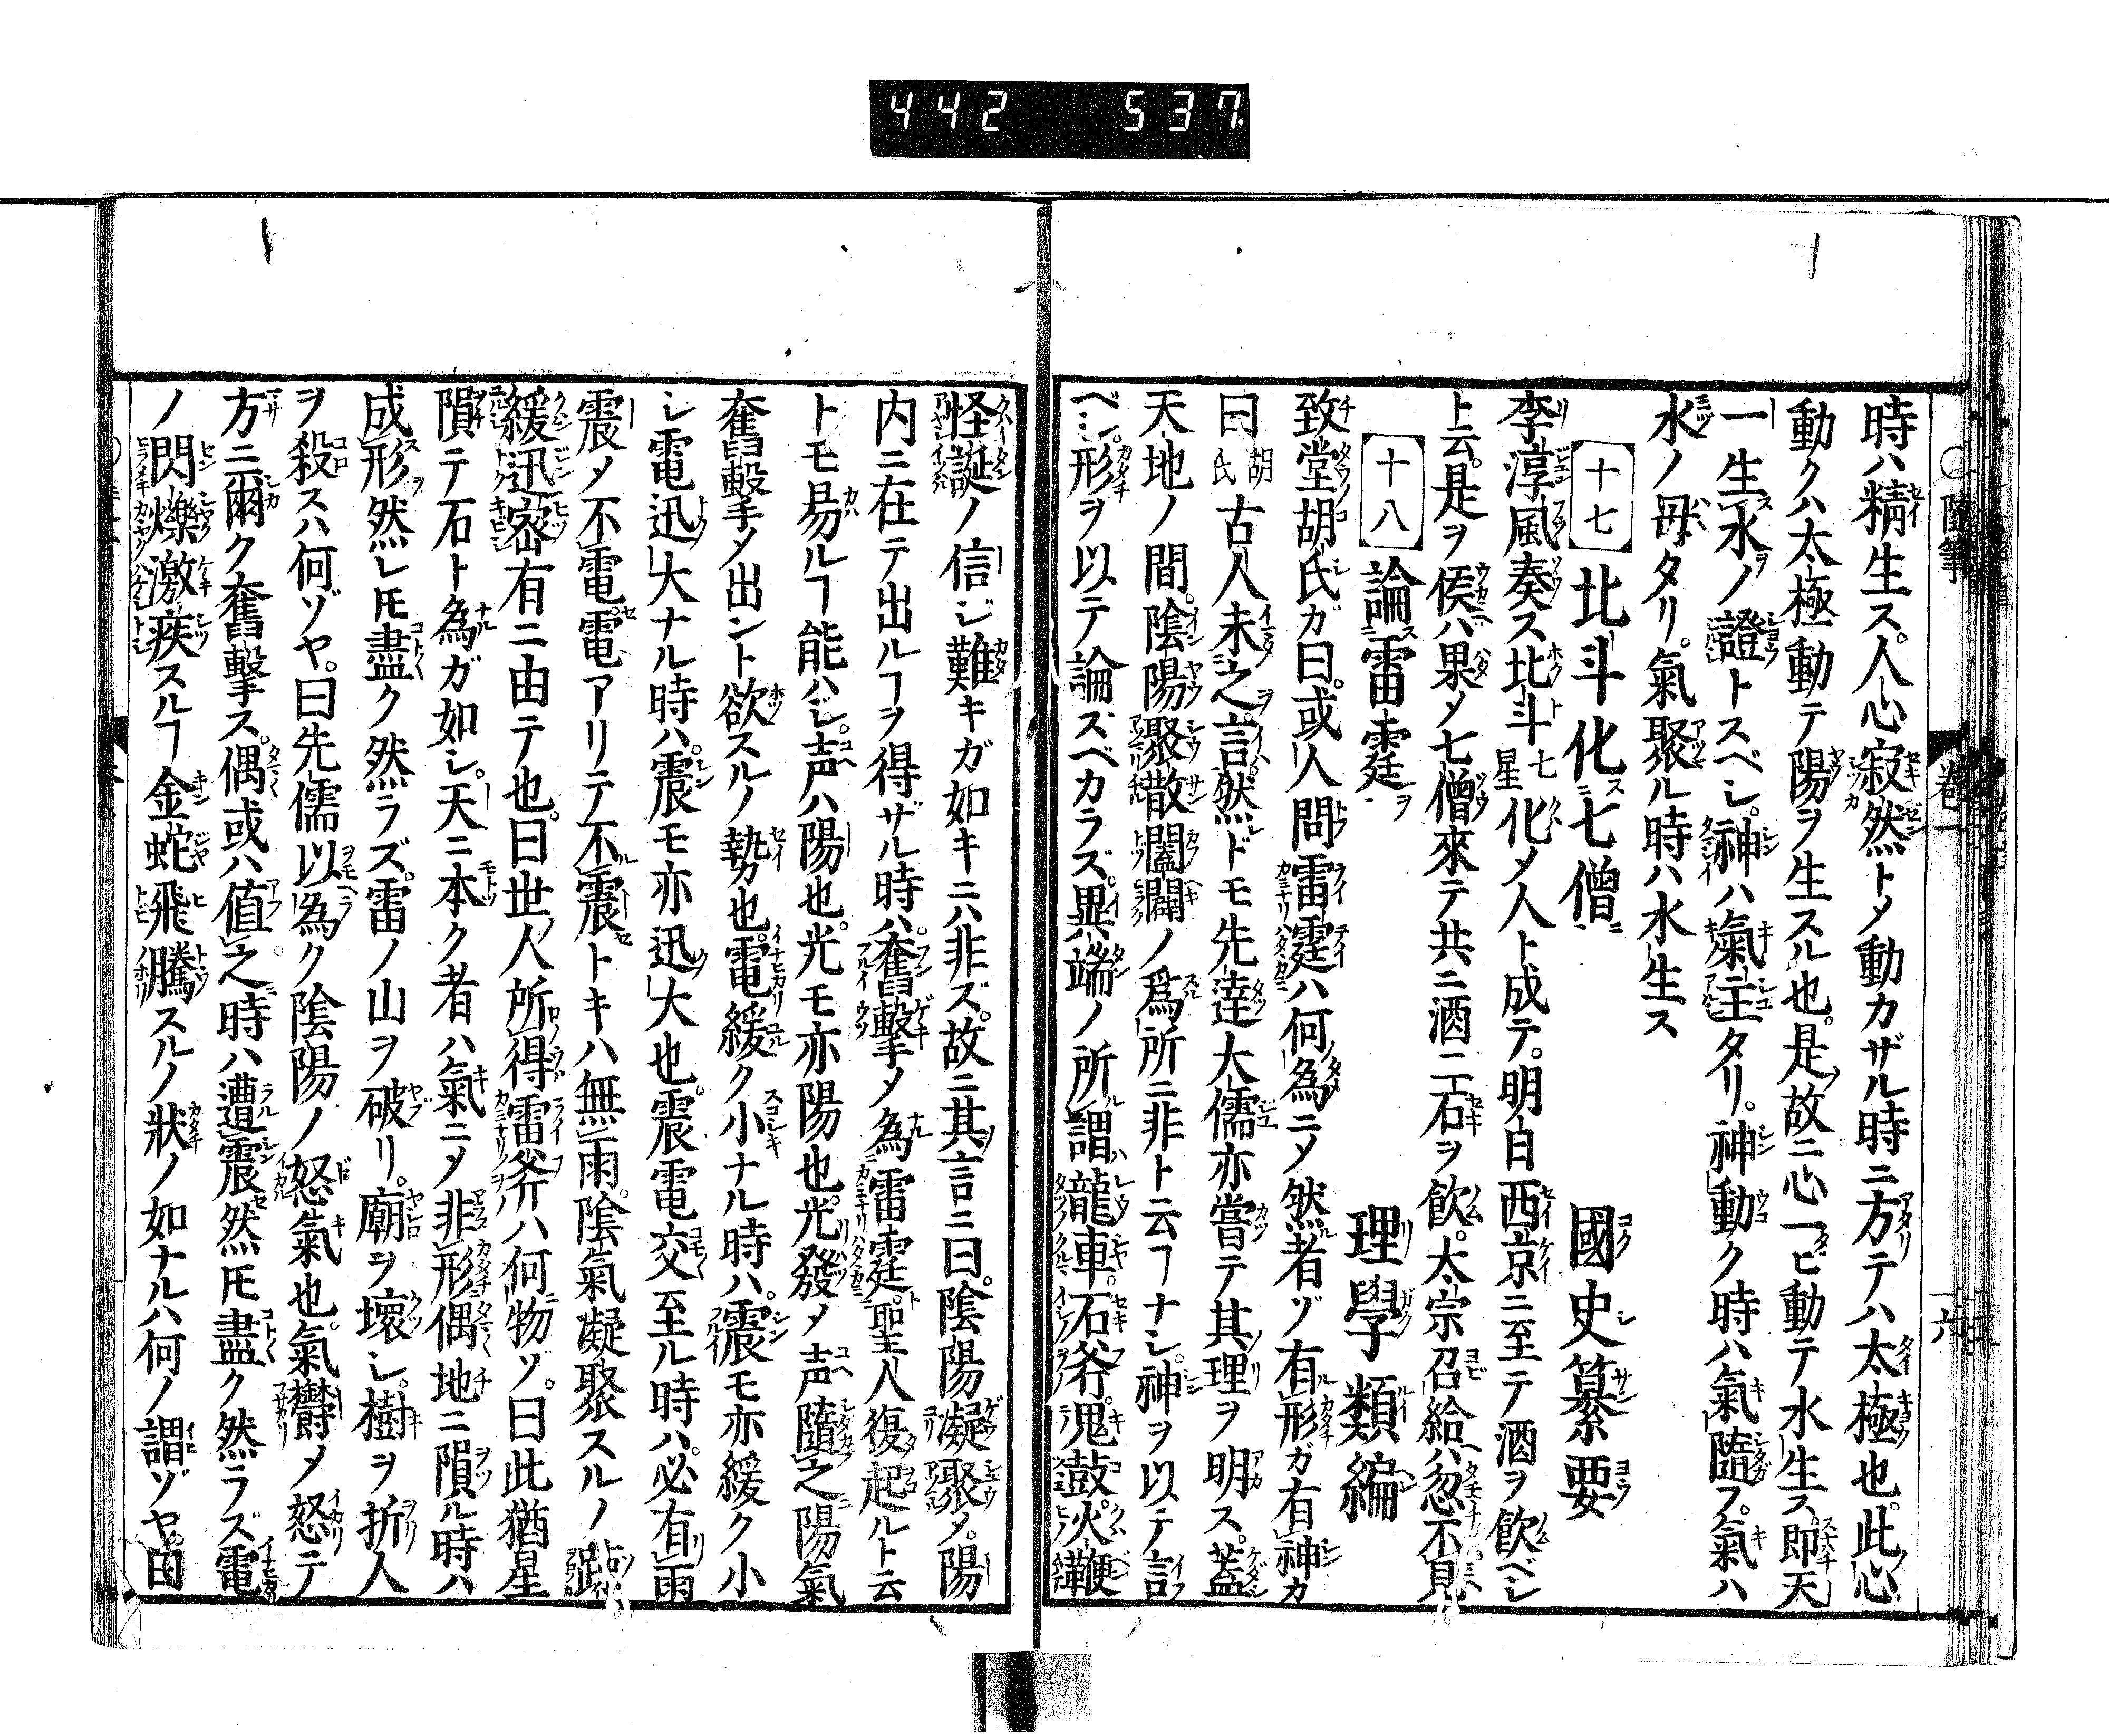 442 537.
時ハ精生ス。人心寂然トメ動カザル時ニ方テハ太極也。此心
動クハ太極動テ陽ヲ生スル也。是故ニ心一ヒ動テ水生ス。即天
一生水ノ證トスベシ。神ハ氣主タリ。神動ク時ハ氣隨フ。氣ハ
水ノ母タリ。氣聚ル時ハ水生ス
十七 北斗化七僧 國史纂要
李淳風奏ス北斗七星化メ人ト成テ。明日西京ニ至テ酒ヲ飲ベシ
ト云。是ヲ侯ハ果メ七僧來テ共ニ酒二石ヲ飲。太宗召給ハ忽不見
十八 論雷霆 理學類編
致堂胡氏ガ曰。或人問雷霆ハ何為ニメ然者ゾ有形ガ有神カ
曰胡氏古人未之言。然ドモ先達大儒亦嘗テ其理ヲ明ス。蓋
天地ノ間。陰陽聚散闔闢ノ爲所ニ非ト云ヿナシ。神ヲ以テ言
ベシ。形ヲ以テ論スベカラズ。異端ノ所謂龍車。石斧。鬼鼓。火鞭
怪誕ノ信ジ難キガ如キニハ非ズ。故ニ其言ニ曰。陰陽凝聚メ。陽
内ニ在テ出ルヿヲ得ザル時ハ。奮擊メ為雷霆。聖人復起ルト云
トモ易ルヿ能ハジ。声ハ陽也。光モ亦陽也。光發メ声隨之陽氣
奮擊メ出ント欲スルノ勢也。電緩ク小ナル時ハ。震モ亦緩ク小
シ電迅大ナル時ハ。震モ亦迅大也。震電交至ル時ハ。必有雨
震メ不電。電アリテ不震トキハ無雨。陰氣凝聚スルノ
緩迅密有ニ由テ也。曰世人所得雷斧ハ何物ゾ。曰此猶星
隕テ石ト為ガ如シ。天ニ本ク者ハ氣ニメ非形偶地ニ隕ル時ハ
成形然レ𪜈盡ク然ラズ。雷ノ山ヲ破リ。廟ヲ壞シ。樹ヲ折人
ヲ殺スハ何ゾヤ。曰先儒以為ク陰陽ノ怒氣也。氣欝メ怒テ
方ニ爾ク奮擊ス。偶或ハ値之時ハ遭震。然𪜈盡ク然ラズ電
ノ閃爍激疾スルヿ金蛇飛騰スルノ狀ノ如ナルハ何ノ謂ゾヤ。曰
隨筆 卷一 六